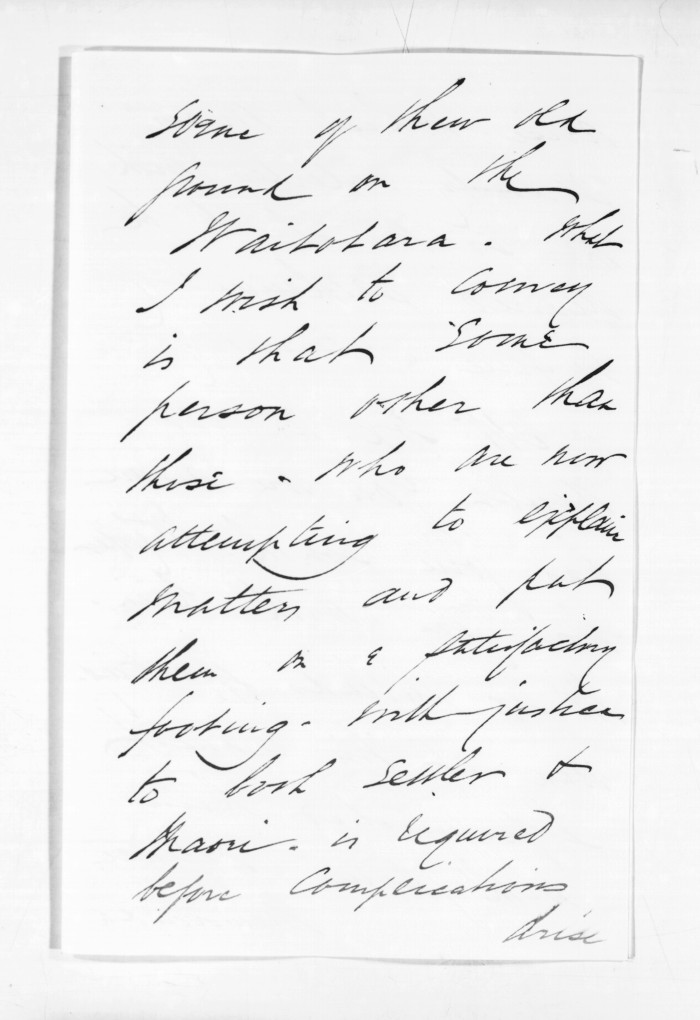 Some of their old
ground on the
Waitotara. What
I wish to convey
is that some
person other than
those - who are now
attempting to explain
matters and put
them on a satisfactory
footing - with justice
to both settler &
Maori - is required
before complications
arise